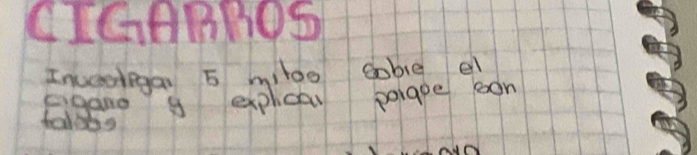 CIGARROS
Investigar 5 mitos sobre el
cigarro y explicar porque son
falsos